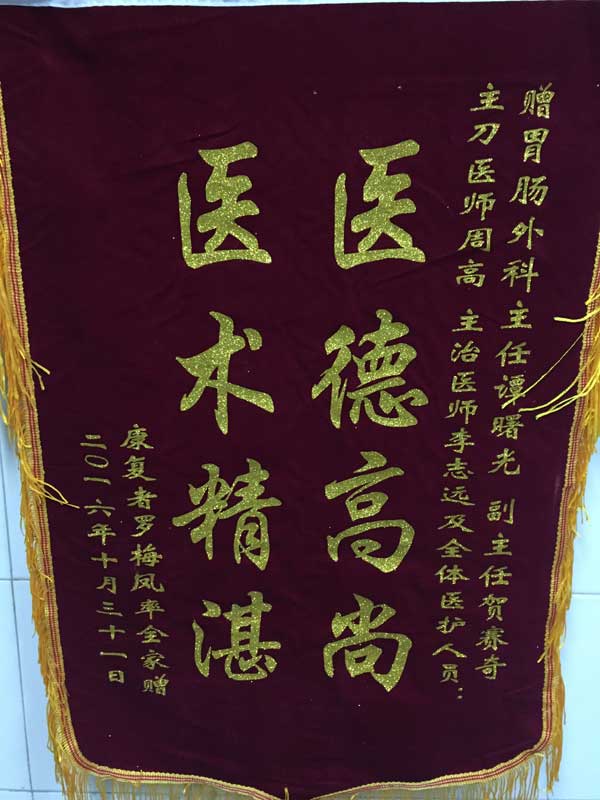 赠胃肠外科主任谭曙光 副主任贺赛奇
主刀医师周高 主治医师李志远及全体医护人员：
医德高尚
医术精湛
康复者罗梅凤率全家赠
二〇一六年十月三十一日